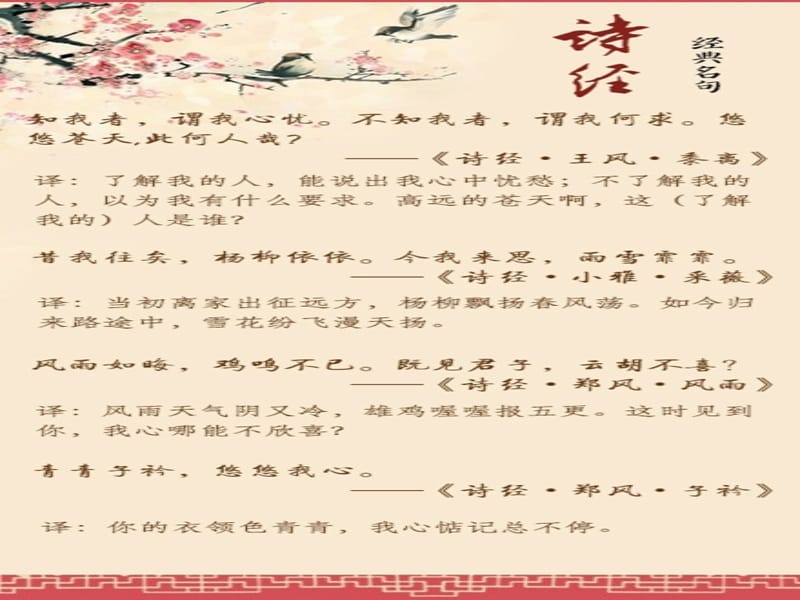 诗经
经典名句
知我者，谓我心忧。不知我者，谓我何求。悠
悠苍天,此何人哉？
——《诗经·王风·黍离》
译：了解我的人，能说出我心中忧愁；不了解我的
人，以为我有什么要求。高远的苍天啊，这（了解
我的）人是谁？
昔我往矣，杨柳依依。今我来思，雨雪霏霏。
——《诗经·小雅·采薇》
译：当初离家出征远方，杨柳飘扬春风荡。如今归
来路途中，雪花纷飞漫天扬。
风雨如晦，鸡鸣不已。既见君子，云胡不喜？
——《诗经·郑风·风雨》
译：风雨天气阴又冷，雄鸡喔喔报五更。这时见到
你，我心哪能不欣喜？
青青子衿，悠悠我心。
——《诗经·郑风·子衿》
译：你的衣领色青青，我心惦记总不停。